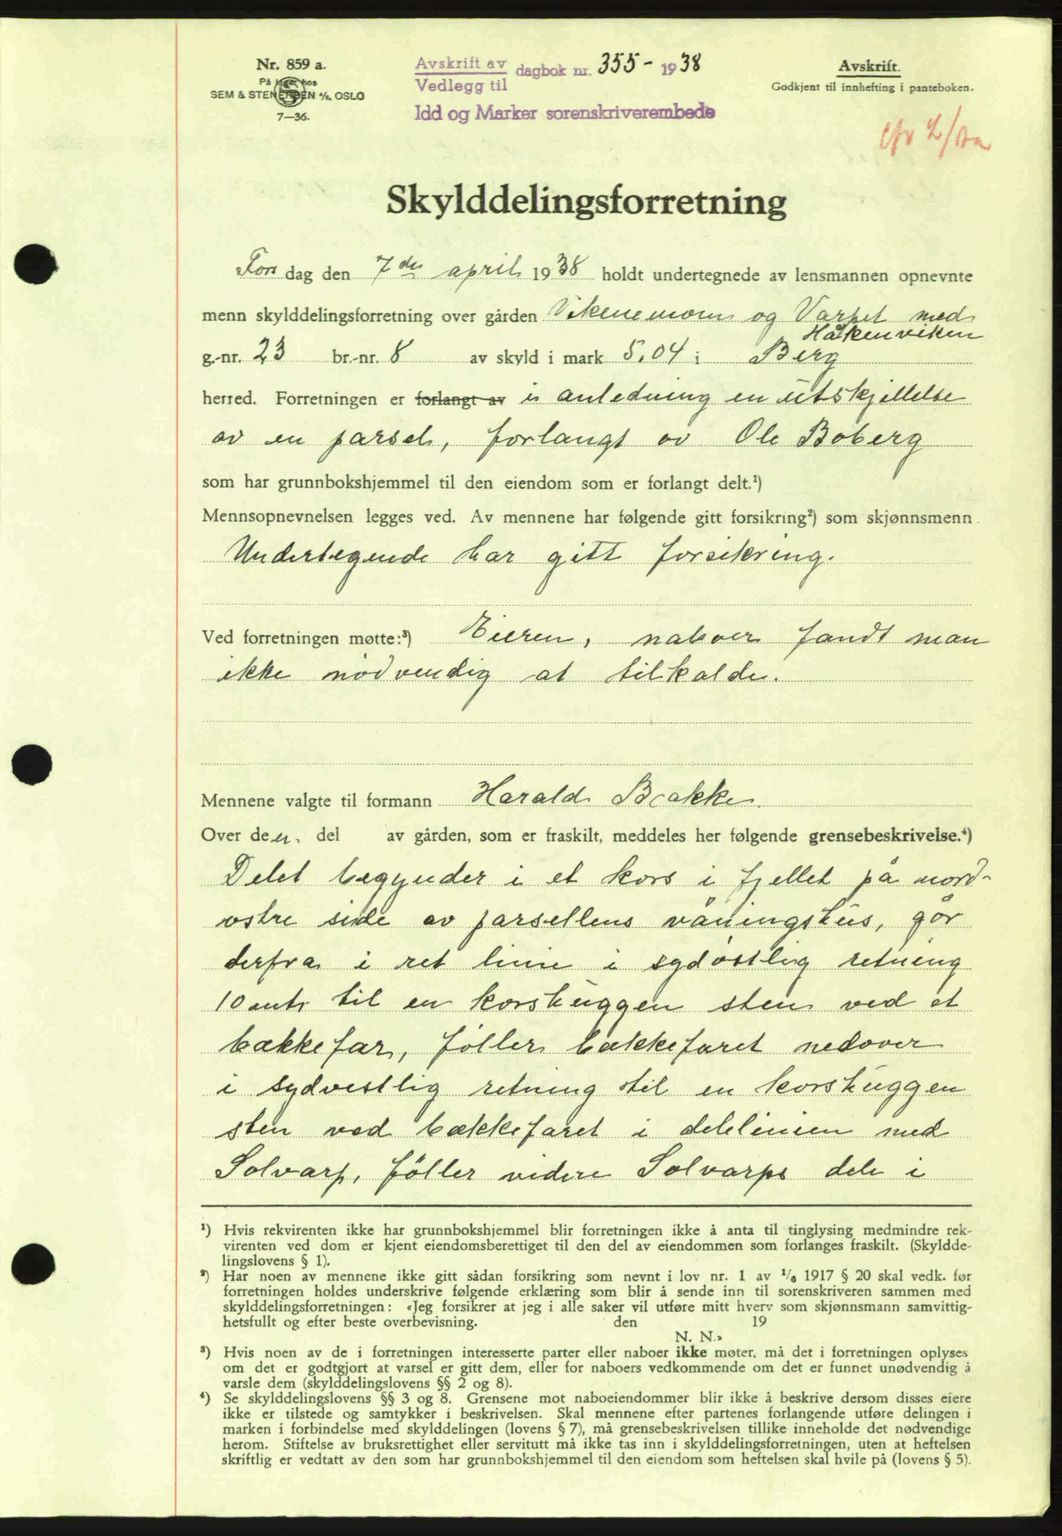 Nr. 859 a.
På lager hos
SEM & STENERSEN A/S, OSLO
7—36.
Avskrift av
Vedlegg til
dagbok nr. 355 - 1938
Idd og Marker sorenskriverembede
Avskrift.
Godkjent til innhefting i panteboken.
Skylddelingsforretning
For dag den 7de april 1938 holdt undertegnede av lensmannen opnevnte
menn skylddelingsforretning over gården Vikenemoen og Varpet med
Håkenviken
g.-nr. 23 br.-nr. 8 av skyld i mark 5.04 i Berg
herred. Forretningen er forlangt av i anledning en utskjillelse
av en parsel, forlangt av Ole Boberg
som har grunnbokshjemmel til den eiendom som er forlangt delt.¹)
Mennsopnevnelsen legges ved. Av mennene har følgende gitt forsikring²) som skjønnsmenn
Undertegende har gitt forsikring.
Ved forretningen møtte:³) Eieren, naboer fandt man
ikke nödvendig at tilkalde.
Mennene valgte til formann Harald Brakke.
Over den del av gården, som er fraskilt, meddeles her følgende grensebeskrivelse.⁴)
Delet begynder i et kors i fjellet på nord-
østre side av parsellens våningshus, går
derfra i ret linie i sydöstlig retning
10 mtr til en korshuggen sten ved et
bækkefar, föller bækkefaret nedover
i sydvestlig retning til en korshuggen
sten ved bækkefaret i delelinien med
Solvarp, föller videre Solvarps dele i
¹) Hvis rekvirenten ikke har grunnbokshjemmel blir forretningen ikke å anta til tinglysing medmindre rek-
virenten ved dom er kjent eiendomsberettiget til den del av eiendommen som forlanges fraskilt. (Skyldde-
lingslovens § 1).
²) Har noen av mennene ikke gitt sådan forsikring som nevnt i lov nr. 1 av 1/6 1917 § 20 skal vedk. før
forretningen holdes underskrive følgende erklæring som blir å sende inn til sorenskriveren sammen med
skylddelingsforretningen: «Jeg forsikrer at jeg i alle saker vil utføre mitt hverv som skjønnsmann samvittig-
hetsfullt og efter beste overbevisning. den 19
N. N.»
³) Hvis noen av de i forretningen interesserte parter eller naboer ikke møter, må det i forretningen oplyses
om det er godtgjort at varsel er gitt dem, eller for naboers vedkommende om det er funnet unødvendig å
varsle dem (skylddelingslovens §§ 2 og 8).
⁴) Se skylddelingslovens §§ 3 og 8. Grensene mot naboeiendommer blir ikke å beskrive dersom disses eiere
ikke er tilstede og samtykker i beskrivelsen. Skal mennene efter partenes forlangende utføre delingen i
marken i forbindelse med skylddelingen (lovens § 7), må grensebeskrivelsen tillike inneholde det nødvendige
herom. Stiftelse av bruksrettighet eller servitutt må ikke tas inn i skylddelingsforretningen, uten at heftelsen
skriftlig er vedtatt av den som har grunnbokshjemmel til den eiendom som heftelsen skal hvile på (lovens § 5).